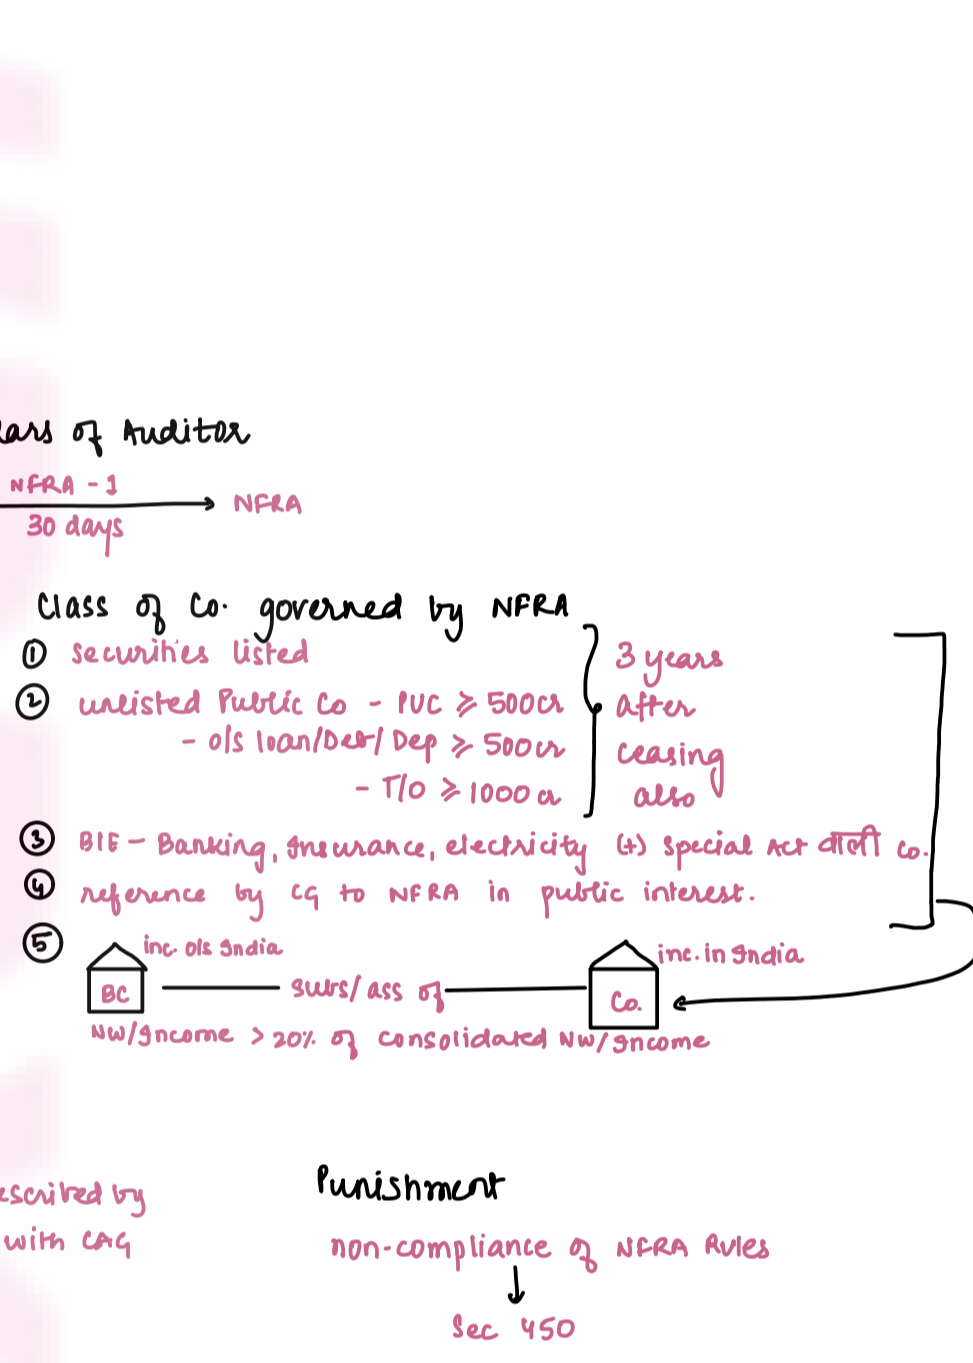 of Auditor
NFRA - 1
30 days
NFRA
Class of Co. governed by NFRA
① Securities listed
② unlisted Public Co - PUC ⩾ 500cr
- o/s loan/Deb/Dep ⩾ 500cr
- T/O ⩾ 1000 cr
3 years
after
ceasing
also
③ BIE - Banking, Insurance, electricity (+) Special Act वाली Co.
④ reference by CG to NFRA in public interest.
⑤
inc. o/s India
BC
subs/ass of
inc. in India
Co.
NW/Income > 20% of consolidated NW/Income
by
with CAG
Punishment
non-compliance of NFRA Rules
Sec 450